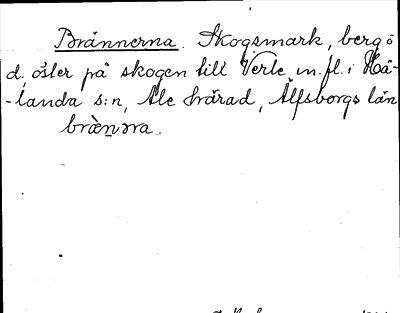 Brännerna. Skogsmark, berg ö
d, öster på skogen till Verle m.fl. i Hå-
-landa s:n, Ale härad, Älfsborgs län